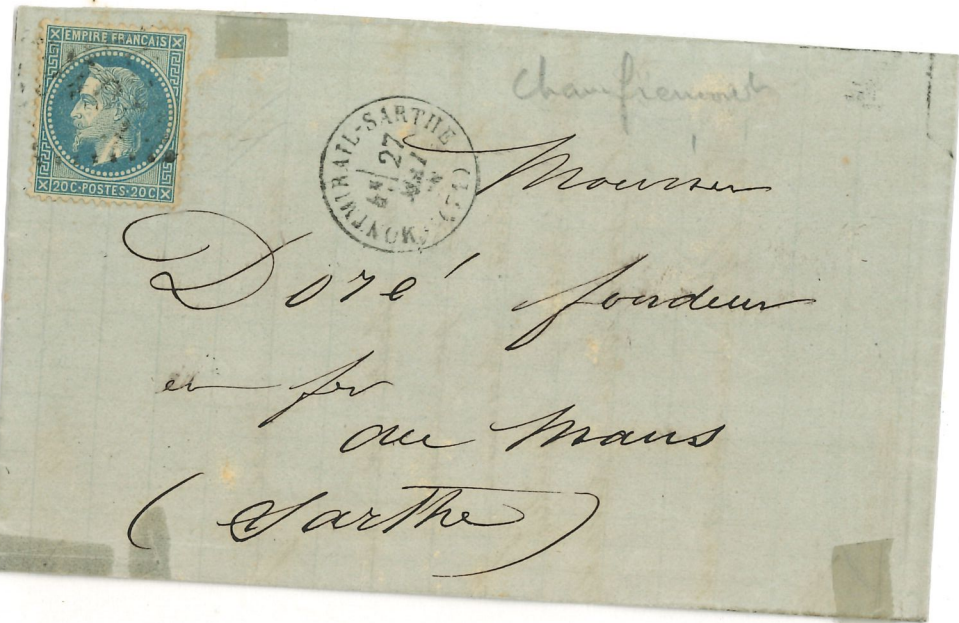 EMPIRE FRANCAIS
20C·POSTES·20C
MONTMIRAIL-SARTHE (71)
27
MAI
Monsieur
Doré fondeur
en fer
au Mans
(Sarthe)